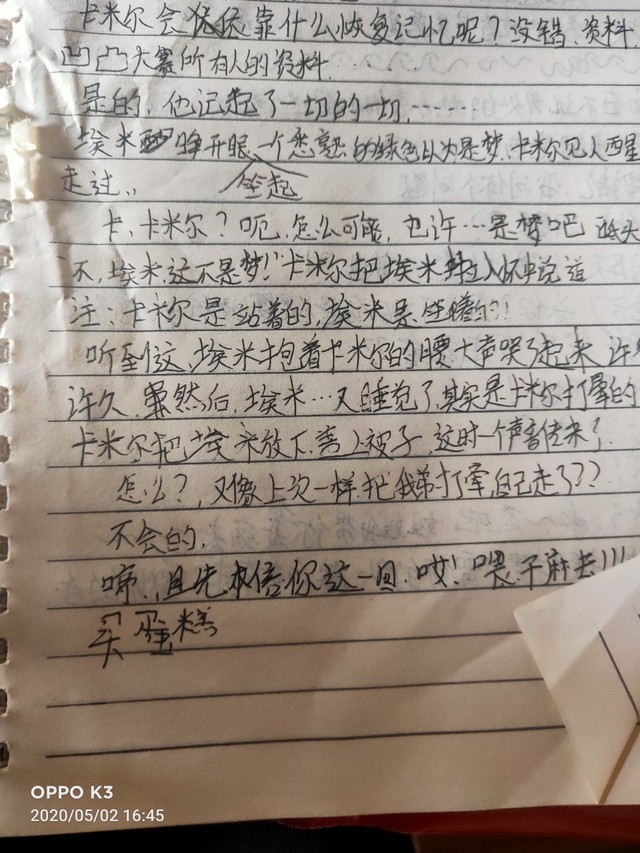 卡米尔会依靠什么恢复记忆呢？没错，资料，
凹凸大赛所有人的资料．．．．．．
是的，他记起了一切的一切，……
埃米睁开眼，一个悉熟的绿色以为是梦，卡米尔见人西星
走过．． 坐起
卡、卡米尔？呃，怎么可能，也许…是梦吧
不，埃米，这不是梦！卡米尔把埃米入怀中说道
注：卡米尔是站着的，埃米是坐着的！
听到这，埃米抱着卡米尔的腰大声哭了起来，许
许久，然后，埃米…又睡觉了，其实是卡米尔打晕的
卡米尔把埃米放下，盖上被子，这时一个声音传来了．
怎么？，又像上次一样把我弟打晕，自己走了？？
不会的，
哼，且先本信你这一回．哎！喂，干麻去！！！
买蛋糕
OPPO K3
2020/05/02 16:45